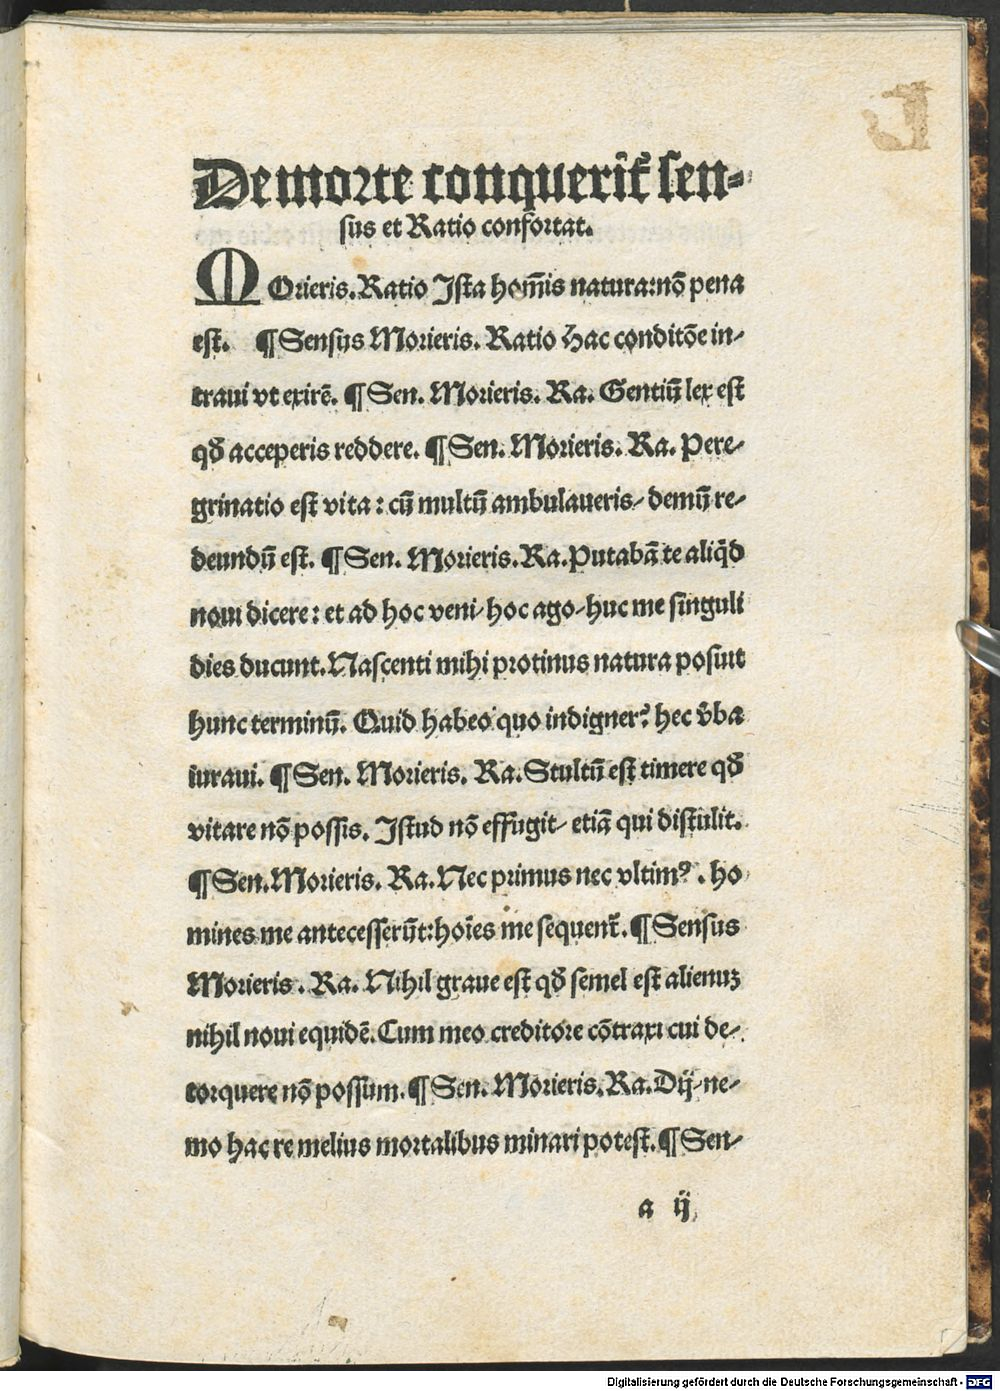 De morte conquerit᷑ sen-
sus et Ratio confortat.
MOrieris. Ratio Ista hoīnis natura: nō pena
est. ¶ Sensus Morieris. Ratio Hac conditōe in-
traui vt exirē. ¶ Sen. Morieris. Ra. Gentiū lex est
qđ acceperis reddere. ¶ Sen. Morieris. Ra. Pere-
grinatio est vita: cū multū ambulaueris/ demū re-
deundū est. ¶ Sen. Morieris. Ra. Putabā te aliq̄d
noui dicere: et ad hoc veni/ hoc ago/ huc me singuli
dies ducunt. Nascenti mihi protinus natura posuit
hunc terminū. Quid habeo quo indigner? hec v̄ba
iuraui. ¶ Sen. Morieris. Ra. Stultū est timere qđ
vitare nō possis. Istud nō effugit/ etiā qui distulit.
¶ Sen. Morieris. Ra. Nec primus nec vltimꝰ. ho
mines me antecesserūt: hoīes me sequent᷑. ¶ Sensus
Morieris. Ra. Nihil graue est qđ semel est alienuꝫ
nihil noui equidē. Cum meo creditore cōtraxi cui de-
torquere nō possum. ¶ Sen. Morieris. Ra. Dij/ ne-
mo hac re melius mortalibus minari potest. ¶ Sen-
a ij
Digitalisierung gefördert durch die Deutsche Forschungsgemeinschaft - DFG